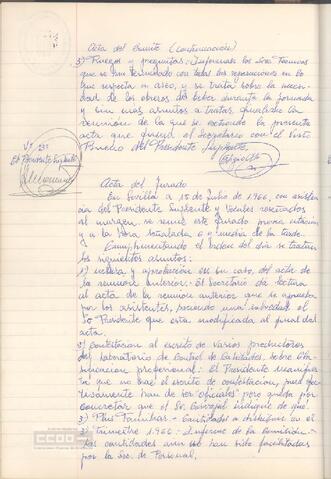 Acta del Comité (Continuación)
3) Ruegos y preguntas: Informan los Sres. Técnicos
que se han terminado con todas las reparaciones en lo
que respecta a aseo, y se trata sobre la necesi-
dad de los obreros de beber durante la jornada
y sin más asuntos a tratar, finaliza la
reunión de la que se extiende la presente
acta que firma el Secretario con el Visto
Bueno del Presidente Suplente.
Vº Bº
El Presidente Suplente
Acta del Jurado
En Sevilla a 15 de Julio de 1966, con asisten-
cia del Presidente Suplente y Vocales reseñados
al margen, se reúne este Jurado previa citación
y a la hora señalada de y media de la tarde.
Cumplimentando el orden del día se tratan
los siguientes asuntos:
1) Lectura y aprobación en su caso, del acta de
la reunión anterior: El Secretario da lectura
al acta de la reunión anterior que es aprobada
por los asistentes, haciendo una salvedad el
Sr. Presidente que esta modificada al final del
acta.
2) Contestación al escrito de varios productores
del laboratorio de Control de Calidades, sobre Cla-
sificación profesional: El Presidente manifies-
ta que no trae el escrito de contestación, pues
han de ser oficiales pero queda por
concretar que el Sr. Carvajal indique de qué.
3) Plus Familiar: Cantidades a percibir en el
3º Trimestre 1966: Informe de la Comisión:
Las cantidades aun no han sido facilitadas
por la Sec. de Personal.
CCOO